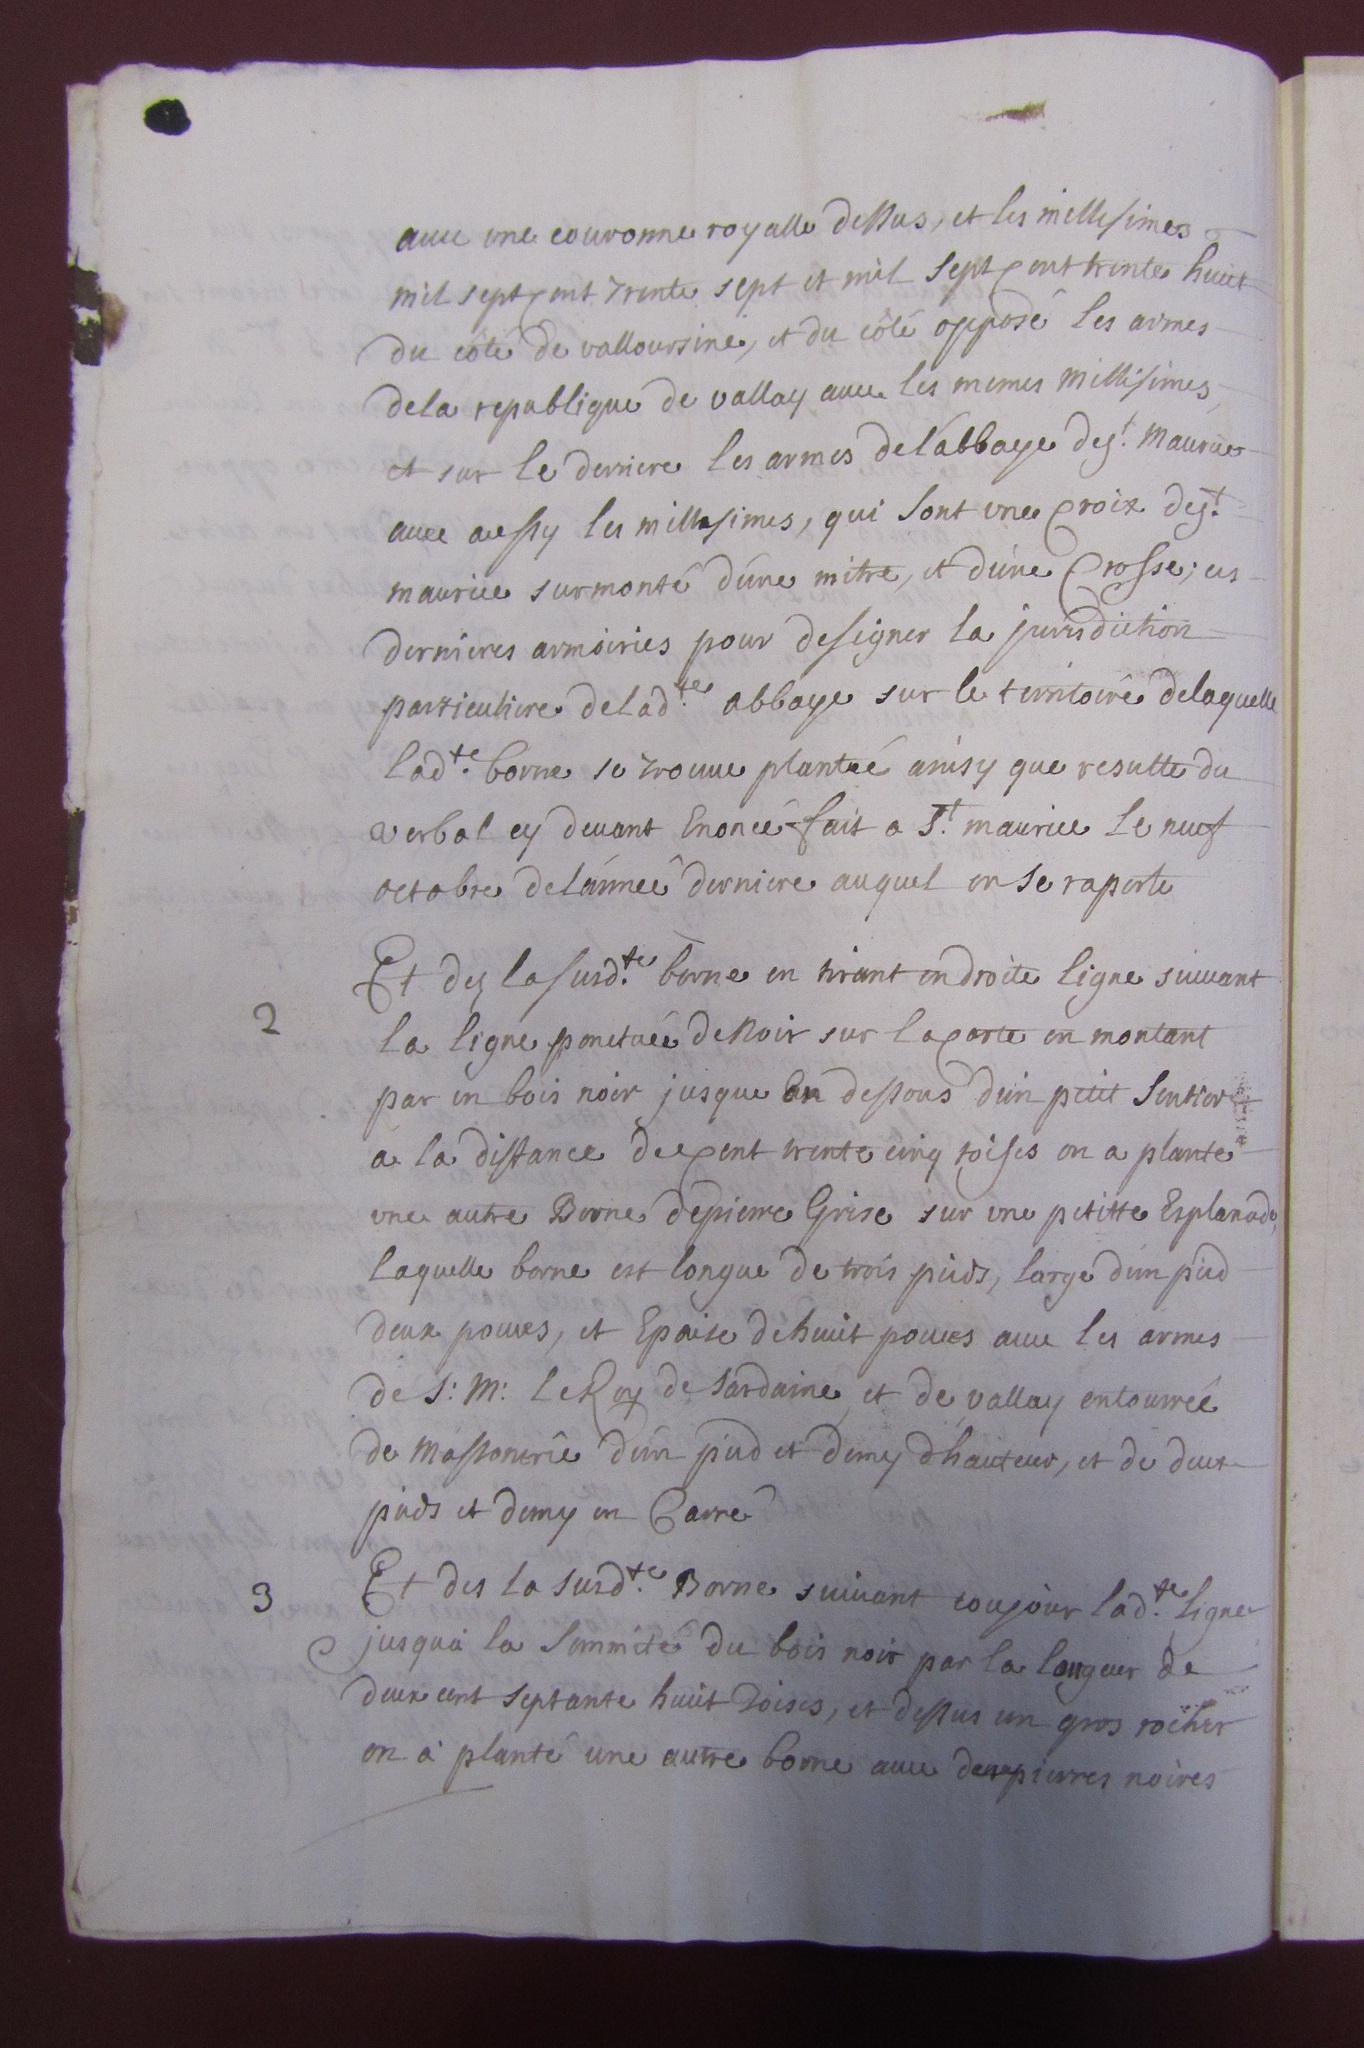 avec une couronne royalle dessus, et les millesimes
mil sept cent trente sept et mil sept cent trente huit
du côté de valloursine, et du côté opposé les armes
dela republique de vallay avec les memes millesimes,
et sur le derriere les armes del'abbaye des.t Maurice
avec aussy les millesimes, qui sont une Croix des.t
maurice surmonté d'une mitre, et d'une Crosse; ces
dernieres armoiries pour designer la jurisdiction
particuliere delad.te abbaye sur le territoire delaquelle
lad.te borne se trouve plantée ainsy que resulte du
verbal cy devant Enoncé fait a S.t maurice le neuf
octobre del'année derniere auquel on se raporte
2 Et dez la susd.te borne en tirant en droite ligne suivant
la ligne ponctuée de Noir sur la Carte en montant
par un bois noir jusque au dessous d'un petit sentier
a la distance de Cent trente cinq toises on a planté
une autre Borne de pierre Grise sur une petitte Esplanade,
laquelle borne est longue de trois pieds, large d'un pied
deux pouces, et Epaise de huit pouces avec les armes
de S: M: le Roy de Sardaine, et de vallay entourrée
de Massonerie d'un pied et demy d'hauteur, et de deux
pieds et demy en Carré
3 Et des la susd.te Borne suivant toujour lad.te ligne
jusqu'a la sommité du bois noir par la longeur de
deux cent septante huit toises, et dessus un gros rocher
on a planté une autre borne avec des pierres noires